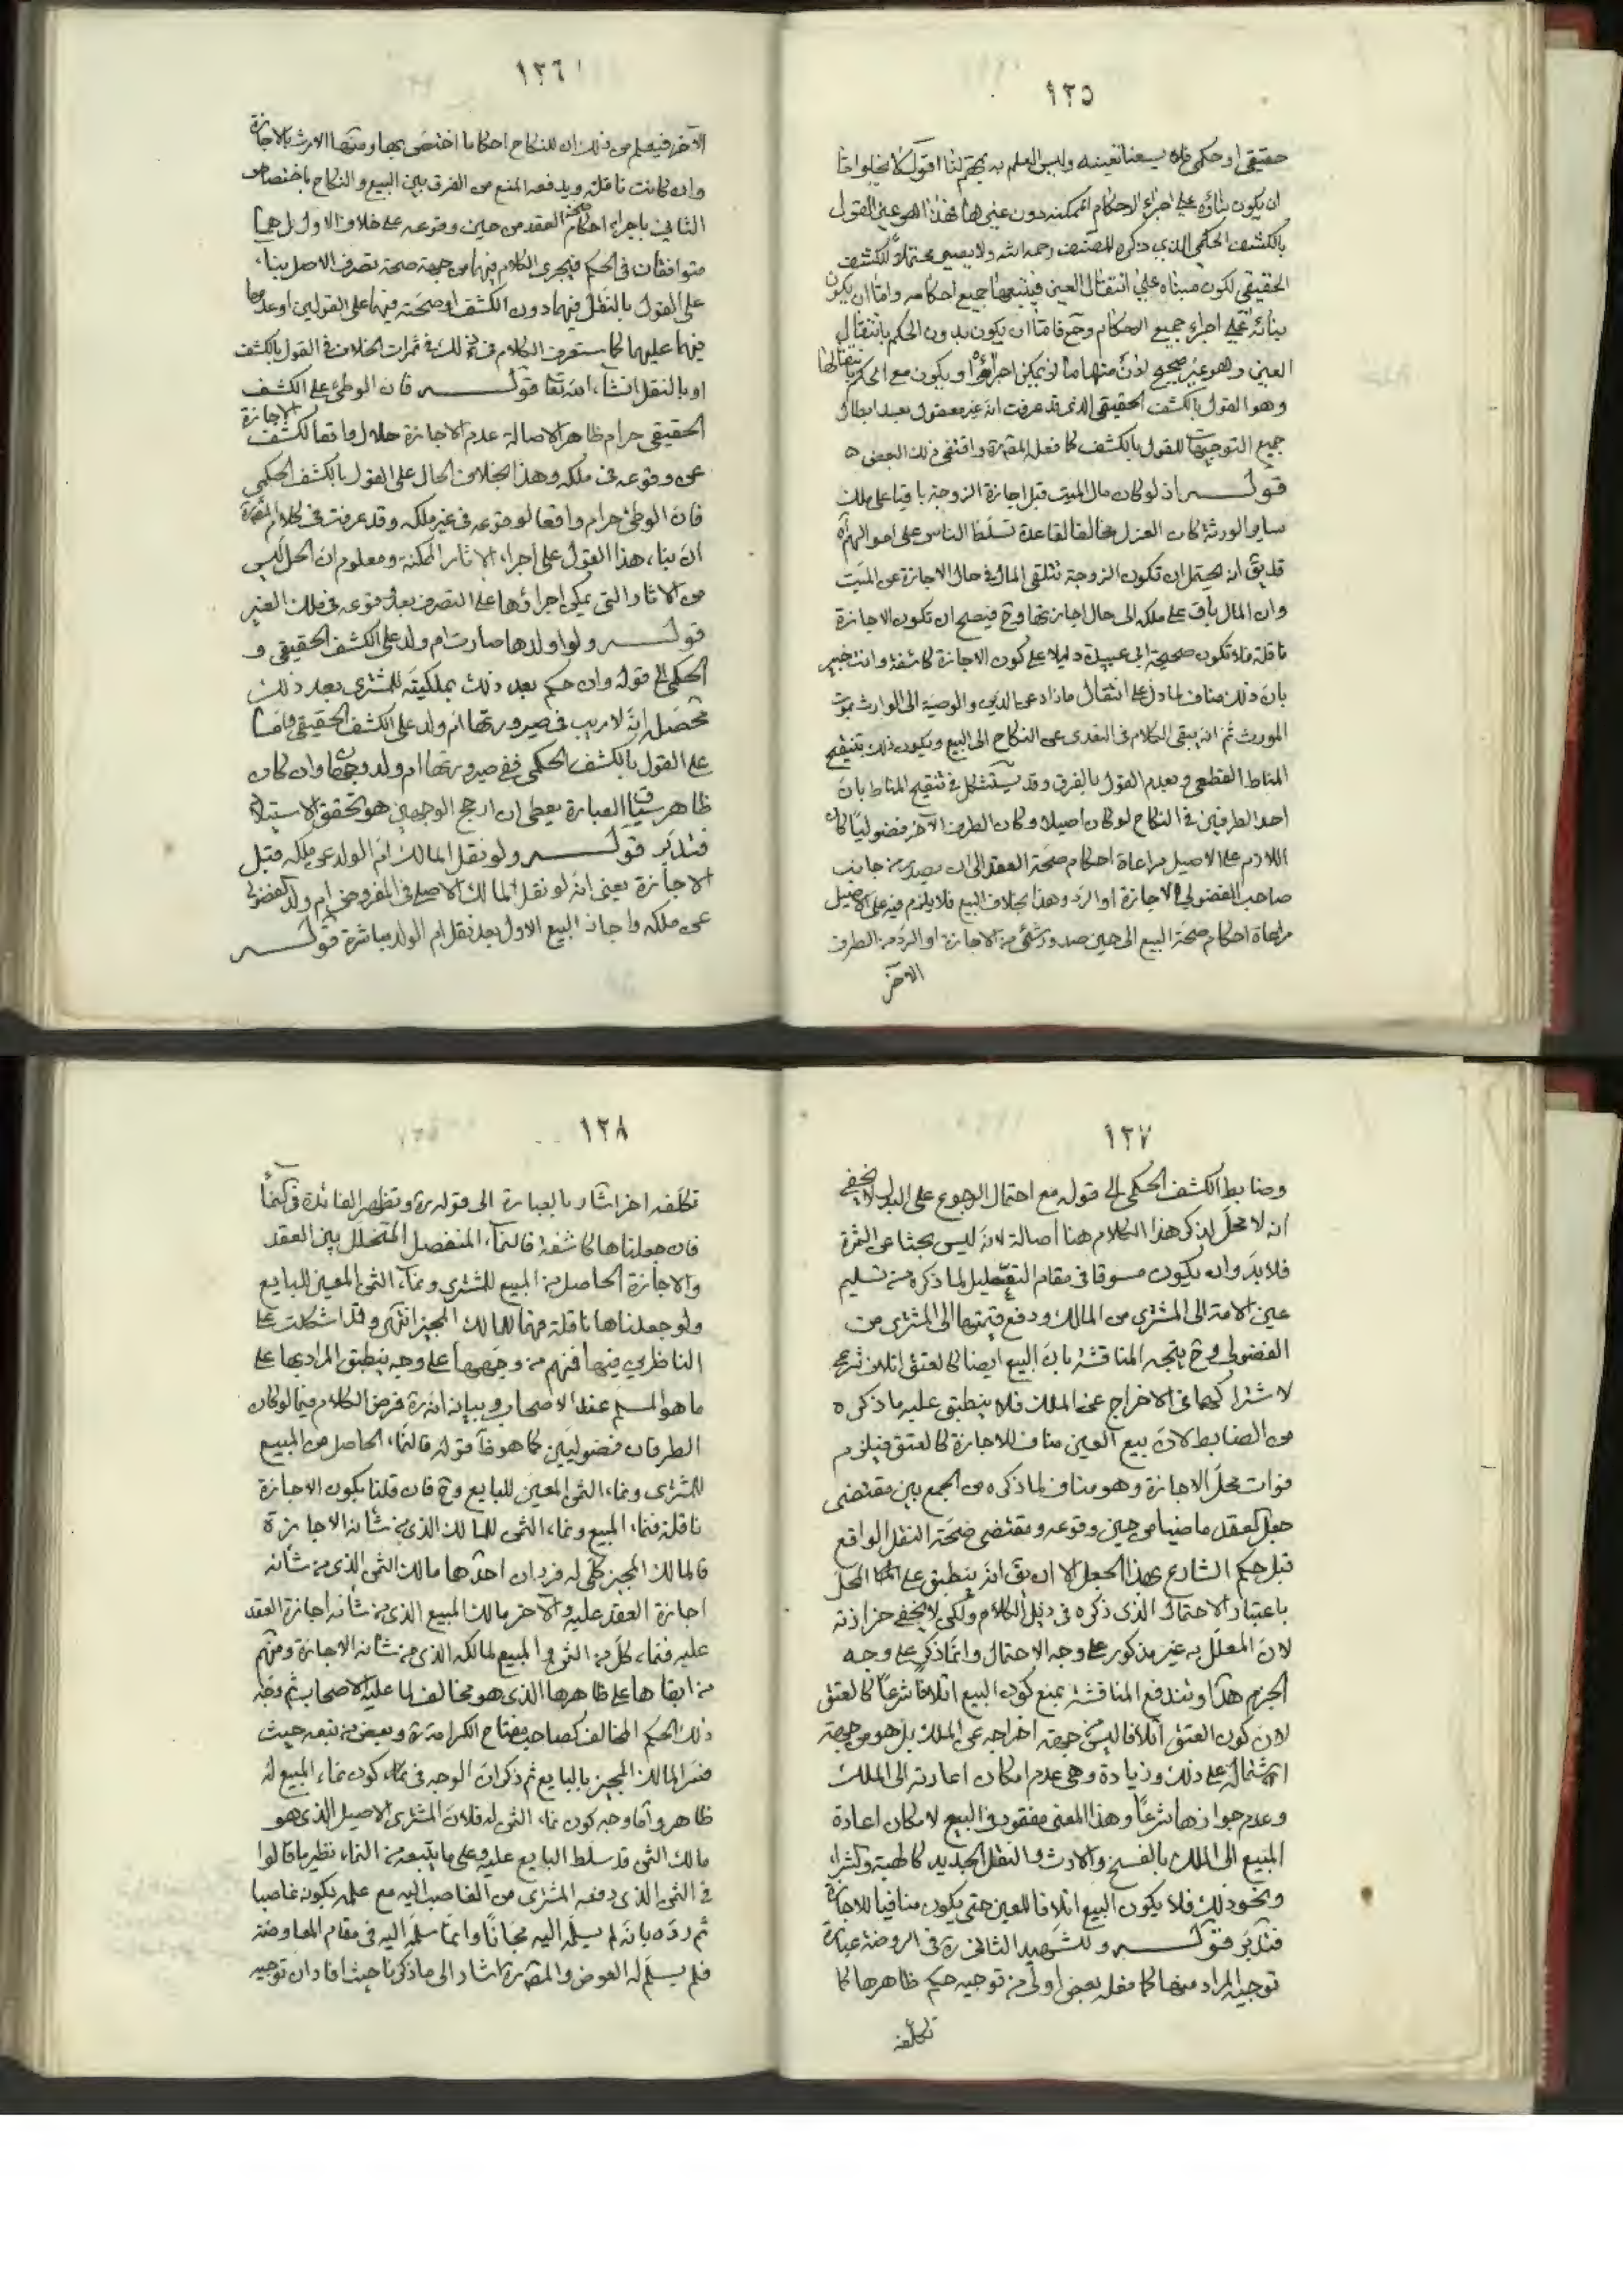 ١٢٥
حقيقي او حكمي فلا يسعنا تعيينه وليس العلم به بمهم لنا اقول لا يخلو امّا
ان يكون بناؤه على اجراء الاحكام الممكنة دون غيرها فهذا هو عين القول
بالكشف الحكمي الذي ذكره المصنف رحمه الله ولا يصير محتملاً للكشف
الحقيقي لكون مبناه على انتقال العين فيتبعها جميع احكامه وامّا ان يكون
بنائه على اجراء جميع الاحكام وح فامّا ان يكون بدون الحكم بانتقال
العين وهو غير صحيح لانّ منها ما لا يمكن اجراؤه او يكون مع الحكم بانتقالها
وهو القول بالكشف الحقيقي الذي قد عرفت انه غير معقول بعد ابطال
جميع التوجيهات للقول بالكشف كما فعله المقرة واقتفى ذلك البعض ه
قوله اذ لو كان مال الميت قبل اجازة الزوجة باقيا على ملك
ساير الورثة كان العزل مخالفا لقاعدة تسلّط الناس على اموالهم آه
قد يق انه يحتمل ان تكون الزوجة تتلقى المال في حال الاجازة عن الميّت
وان المال باق على ملكه الى حال اجازتها وح فيصح ان تكون الاجازة
ناقلة فلا تكون صحيحة ابي عبيدة دليلا على كون الاجازة كاشفة وانت خبير
بانّ ذلك مناف لما دل على انتقال ماذا دعى الدين والوصية الى الوارث بموت
المورث ثم انه يبقى الكلام في التعدى عن النكاح الى البيع ويكون ذلك بتنقيح
المناط القطعي وبعدم القول بالفرق وقد يستشكل في تنقيح المناط بان
احد الطرفين في النكاح لو كان اصيلا وكان الطرف الآخر فضوليّا كان
اللازم على الاصيل مراعاة احكام صحّة العقد الى ان يصدر من جانب
صاحب الفضولي الاجازة او الرد وهذا بخلاف البيع فلا يلزم فيه على الاصيل
مراعاة احكام صحة البيع الى حين صدور شئ من الاجازة او الردّ من الطرف
الآخر
١٢٦
الآخر فيعلم من ذلك ان للنكاح احكاما اختصّ بها ومنها الارث بالاجازة
وان كانت ناقلة ويدفعه المنع من الفرق بين البيع والنكاح باختصاص
الثاني باجراء احكام صحة العقد من حين وقوعه على خلاف الاول بل هما
متوافقان في الحكم فيجرى الكلام فيهما من جهة صحة تصرف الاصيل بناء
على القول بالنقل فيهما دون الكشف او صحّته فيهما على القولين او عدمها
فيهما عليهما كما ستعرف الكلام في ذلك في ثمرات الخلاف في القول بالكشف
او بالنقل انشاء الله تعا قوله فان الوطئ على الكشف
الحقيقي حرام ظاهر الاصالة عدم الاجازة حلال واقعا لكشف الاجازة
عن وقوعه في ملكه وهذا بخلاف الحال على القول بالكشف الحكمي
فان الوطئ حرام واقعا لوقوعه في غير ملكه وقد عرفت في كلام المقرة
ان بناء هذا القول على اجراء الاثار الممكنة ومعلوم ان الحل ليس
من الاثار التي يمكن اجراؤها على التصرف بعد وقوعه في ملك الغير
قوله ولو اولدها صارت ام ولد على الكشف الحقيقي و
الحكمي الى قوله وان حكم بعد ذلك بملكيّته للمشترى بعد ذلك
محصّله انّه لا ريب في صيرورتها ام ولد على الكشف الحقيقي وامّا
على القول بالكشف الحكمي ففي صيرورتها ام ولد وجهان وان كان
ظاهر سياق العبارة يعطى ان ارجح الوجهين هو تحقق الاستيلاد
فتدبّر قوله ولو نقل المالك ام الولد عن ملكه قبل
الاجازة يعني انه لو نقل المالك الاصلى في المفروض ام ولد الفضولى
عن ملكه واجاز البيع الاول بعد نقل ام الولد مباشرة قوله
١٢٧
وضابط الكشف الحكمي الى قوله مع احتمال الرجوع على البدل لا يخفى
انه لا محلّ لذكر هذا الكلام هنا اصالة لانه ليس بحثا عن الثمرة
فلا بدّ وان يكون مسوقا في مقام التعليل لما ذكره من تسليم
عين الامة الى المشترى من المالك ودفع قيمتها الى المشترى من
الفضولي وح يتجه المناقشة بان البيع ايضا كالعتق اتلاف شرعي
لاشتراكهما في الاخراج عن الملك فلا ينطبق عليه ما ذكره
من الضابط لان بيع العين مناف للاجازة كالعتق فيلزم
فوات محل الاجازة وهو مناف لما ذكره من الجمع بين مقتضى
جعل العقد ماضيا من حين وقوعه ومقتضى صحّة النقل الواقع
قبل حكم الشارع بهذا الجعل الا ان يق انه ينطبق على المحلّ
باعتبار الاحتمال الذى ذكره في ذيل الكلام ولكن لا يخفى حزازته
لان المعلّل به غير مذكور على وجه الاحتمال وانّما ذكر على وجه
الجزم هذا وتندفع المناقشة بمنع كون البيع اتلافا شرعاً كالعتق
لان كون العتق اتلافا ليس من جهة اخراجه عن الملك بل هو من جهة
اشتماله على ذلك وزيادة وهى عدم امكان اعادته الى الملك
وعدم جوازها شرعاً وهذا المعنى مفقود في البيع لامكان اعادة
المبيع الى الملك بالفسخ والارث والنقل الجديد كالهبة والشراء
ونحو ذلك فلا يكون البيع اتلافا للعين حتى يكون منافيا للاجازة
فتدبّر قوله وللشهيد الثاني ره في الروضة عبارة
توجيه المراد منها كما فعله بعض اولى من توجيه حكم ظاهرها كما
تكلّفه
١٢٨
تكلّفه اخر اشار بالعبارة الى قوله ره وتظهر الفائدة في النماء
فان جعلناها كاشفة فالنماء المنفصل المتخلّل بين العقد
والاجازة الحاصل من المبيع للمشترى ونماء الثمن المعين للبايع
ولو جعلناها ناقلة فهما للمالك المجيز انتهى وقد اشكلت على
الناظرين فيها فمنهم من وجّهها على وجه ينطبق المراد بها على
ما هو المسلّم عند الاصحاب وبيانه انه ره فرض الكلام فيما لو كان
الطرفان فضوليّين كما هو ظاهر قوله فالنماء الحاصل من المبيع
للمشترى ونماء الثمن المعيّن للبايع وح فان قلنا بكون الاجازة
ناقلة فنماء المبيع ونماء الثمن للمالك الذي من شأنه الاجازة
فالمالك المجيز كلّى له فردان احدهما مالك الثمن الذى من شأنه
اجازة العقد عليه والآخر مالك المبيع الذى من شأنه اجازة العقد
عليه فنماء كلّ من الثمن والمبيع لمالكه الذى من شأنه الاجازة ومنهم
من ابقاها على ظاهرها الذى هو مخالف لما عليه الاصحاب ثم وجّه
ذلك الحكم المخالف كصاحب مفتاح الكرامة ره وبعض من تبعه حيث
فسّر المالك المجيز بالبايع ثم ذكر ان الوجه في كون نماء المبيع له
ظاهر وامّا وجه كون نماء الثمن له فلانّ المشترى الاصيل الذى هو
مالك الثمن قد سلّط البايع عليه وعلى ما يتبعه من النماء نظير ما قالوا
في الثمن الذى دفعه المشترى من الغاصب اليه مع علمه بكونه غاصبا
ثم ردّه بانه لم يسلّمه اليه مجاناً وانما سلّمه اليه في مقام المعاوضة
فلم يسلّم له العوض والمقرة اشار الى ما ذكرنا حيث افاد ان توجيه